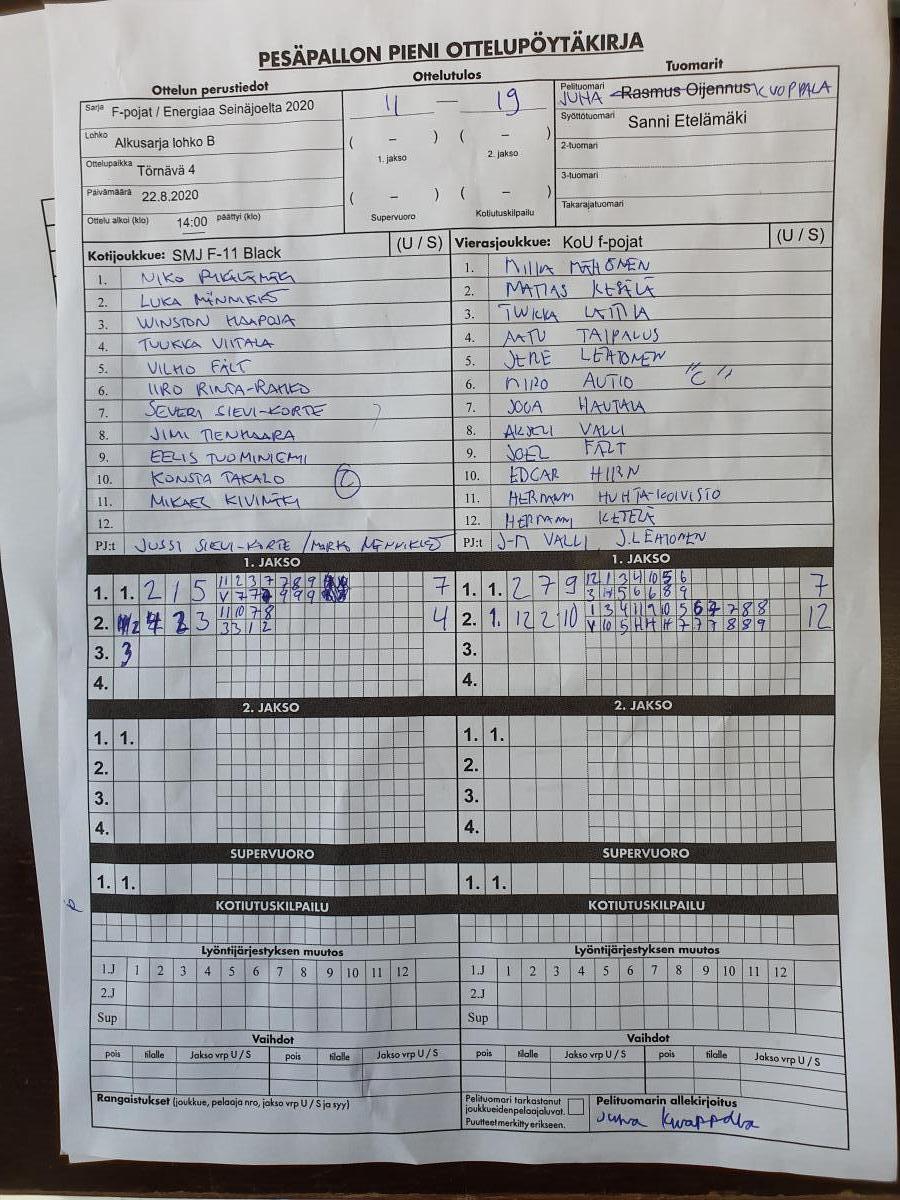 PESÄPALLON PIENI OTTELUPÖYTÄKIRJA
Ottelun perustiedot
Ottelutulos
Tuomarit
Sarja F-pojat / Energiaa Seinäjoelta 2020
Lohko Alkusarja lohko B
Ottelupaikka Törnävä 4
Päivämäärä 22.8.2020
Ottelu alkoi (klo) 14:00 päättyi (klo)
11 — 19
( – ) ( – )
1. jakso 2. jakso
( – ) ( – )
Supervuoro Kotiutuskilpailu
Pelituomari JUHA Rasmus Oijennus KUOPPALA
Syöttötuomari Sanni Etelämäki
2-tuomari
3-tuomari
Takarajatuomari
Kotijoukkue: SMJ F-11 Black (U / S)
1. NIKO
2. LUKA MÄNNIKKÖ
3. WINSTON HAAPOJA
4. TUUKKA VIITALA
5. VILHO FÄLT
6. IIRO RINTA-RAHKO
7. SEVERI SIEVI-KORTE
8. JIMI TIENHAARA
9. EELIS TUOMINIEMI
10. KONSTA TAKALO C
11. MIKAEL KIVIMÄKI
12.
PJ:t JUSSI SIEVI-KORTE / MARKO MÄNNIKKÖ
Vierasjoukkue: KoU f-pojat (U / S)
1. MÄHÖNEN
2. MATIAS KESÄLÄ
3. LATTILA
4. AATU TAIPALUS
5. JERE LEHTONEN
6. MIRO AUTIO "C"
7. JOOA HAUTALA
8. AKSELI VALLI
9. JOEL FÄLT
10. EDGAR
11. HERMANNI HUHTA-KOIVISTO
12. HERMANNI KETELÄ
PJ:t J-M VALLI J.LEHTONEN
1. JAKSO
1. 1. 2 1 5 11 2 3 7 7 8 9 7
2. 3 11 10 7 8 4
3 3 1 2
3. 3
4.
1. JAKSO
1. 1. 2 7 9 12 1 3 4 10 5 6 7
2. 1. 12 2 10 1 3 4 11 9 10 5 6 7 7 8 8 12
3.
4.
2. JAKSO
1. 1.
2.
3.
4.
2. JAKSO
1. 1.
2.
3.
4.
SUPERVUORO
1. 1.
SUPERVUORO
1. 1.
KOTIUTUSKILPAILU
KOTIUTUSKILPAILU
Lyöntijärjestyksen muutos
1.J 1 2 3 4 5 6 7 8 9 10 11 12
2.J
Sup
Lyöntijärjestyksen muutos
1.J 1 2 3 4 5 6 7 8 9 10 11 12
2.J
Sup
Vaihdot
pois tilalle Jakso vrp U / S pois tilalle Jakso vrp U / S
Vaihdot
pois tilalle Jakso vrp U / S pois tilalle Jakso vrp U / S
Rangaistukset (joukkue, pelaaja nro, jakso vrp U / S ja syy)
Pelituomari tarkastanut
joukkueidenpelaajaluvat.
Puutteet merkitty erikseen.
Pelituomarin allekirjoitus
Juha Kuoppala